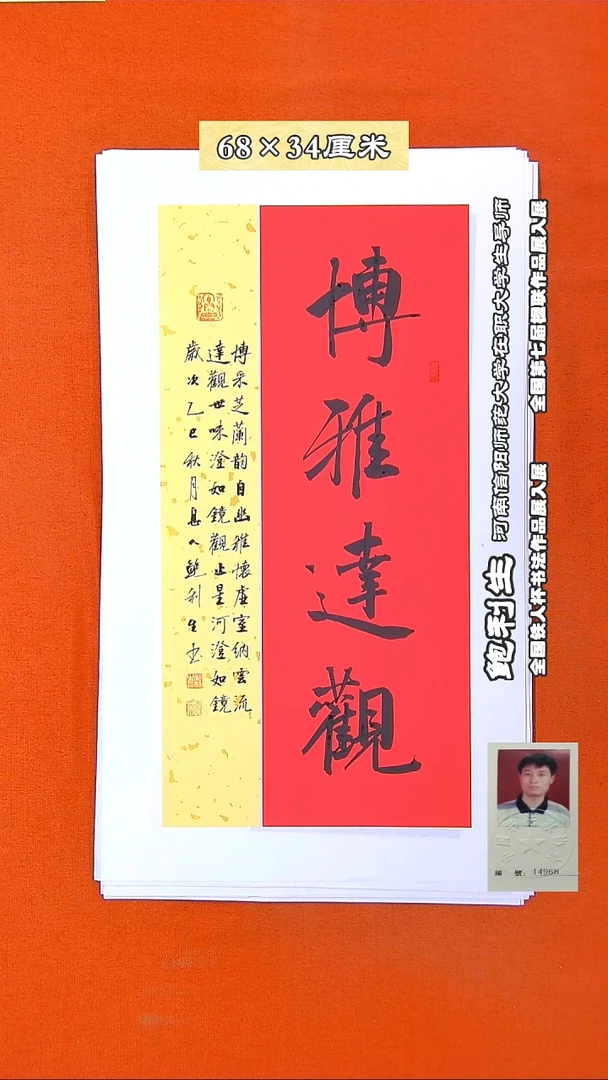 68×34厘米
博雅達觀
博采芝蘭韵自幽雅懷虛室納雲流
達觀世味澄如鏡觀止星河澄如鏡
歲次乙巳秋月鮑利生书
鲍利生 河南信阳师范大学在职大学生导师
全国铁人杯书法作品展入展
全国第七届楹联作品展入展
編號：14968